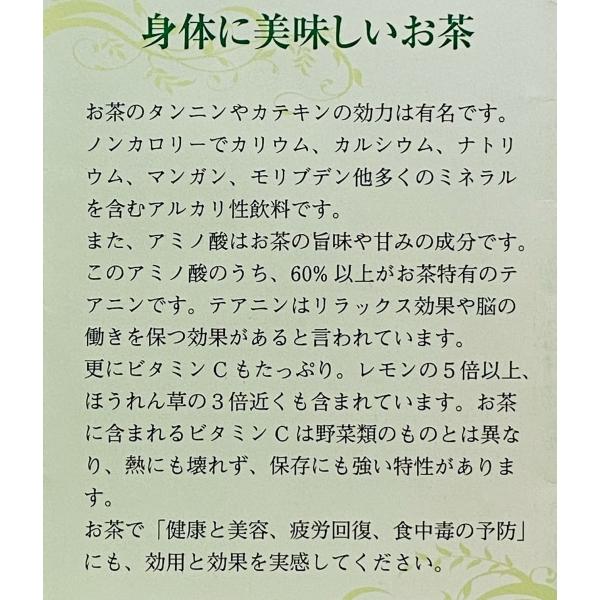 身体に美味しいお茶
お茶のタンニンやカテキンの効力は有名です。
ノンカロリーでカリウム、カルシウム、ナトリ
ウム、マンガン、モリブデン他多くのミネラル
を含むアルカリ性飲料です。
また、アミノ酸はお茶の旨味や甘みの成分です。
このアミノ酸のうち、60% 以上がお茶特有のテ
アニンです。テアニンはリラックス効果や脳の
働きを保つ効果があると言われています。
更にビタミン C もたっぷり。レモンの５倍以上、
ほうれん草の３倍近くも含まれています。お茶
に含まれるビタミン C は野菜類のものとは異な
り、熱にも壊れず、保存にも強い特性がありま
す。
お茶で「健康と美容、疲労回復、食中毒の予防」
にも、効用と効果を実感してください。